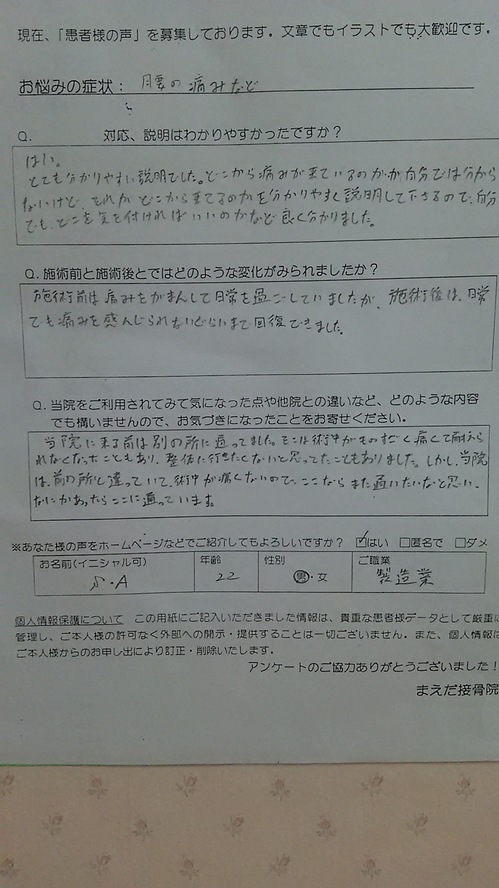 現在、「患者様の声」を募集しております。文章でもイラストでも大歓迎です。
お悩みの症状: 腰の痛みなど
Q. 対応、説明はわかりやすかったですか?
はい。
とても分かりやすい説明でした。どこから痛みが来ているのかが自分では分から
ないけど、それがどこから来てるのかを分かりやすく説明して下さるので、自分
でも、どこを気を付ければいいのかなど良く分かりました。
Q. 施術前と施術後とではどのような変化がみられましたか?
施術前は痛みをがまんして日常を過ごしていましたが、施術後は、日常
ても痛みを感んじられないぐらいまで回復できました。
Q. 当院をご利用されてみて気になった点や他院との違いなど、どのような内容
でも構いませんので、お気づきになったことをお寄せください。
当院に来る前は別の所に通ってました。そこは術中がものすごく痛くて耐えら
れなくなったこともあり、整体に行きたくないと思ってたこともありました。しかし、当院
は、前の所と違っていて、術中が痛くないので、ここならまた通いたいなと思い、
なにかあったらここに通っています。
※あなた様の声をホームページなどでご紹介してもよろしいですか? ☑はい □匿名で □ダメ
お名前(イニシャル可) 年齢 性別 ご職業
・A 22 男・女 製造業
個人情報保護について この用紙にご記入いただきました情報は、貴重な患者様データとして厳重に
管理し、ご本人様の許可なく外部への開示・提供することは一切ございません。また、個人情報は
ご本人様からのお申し出により訂正・削除いたします。
アンケートのご協力ありがとうございました!
まえだ接骨院